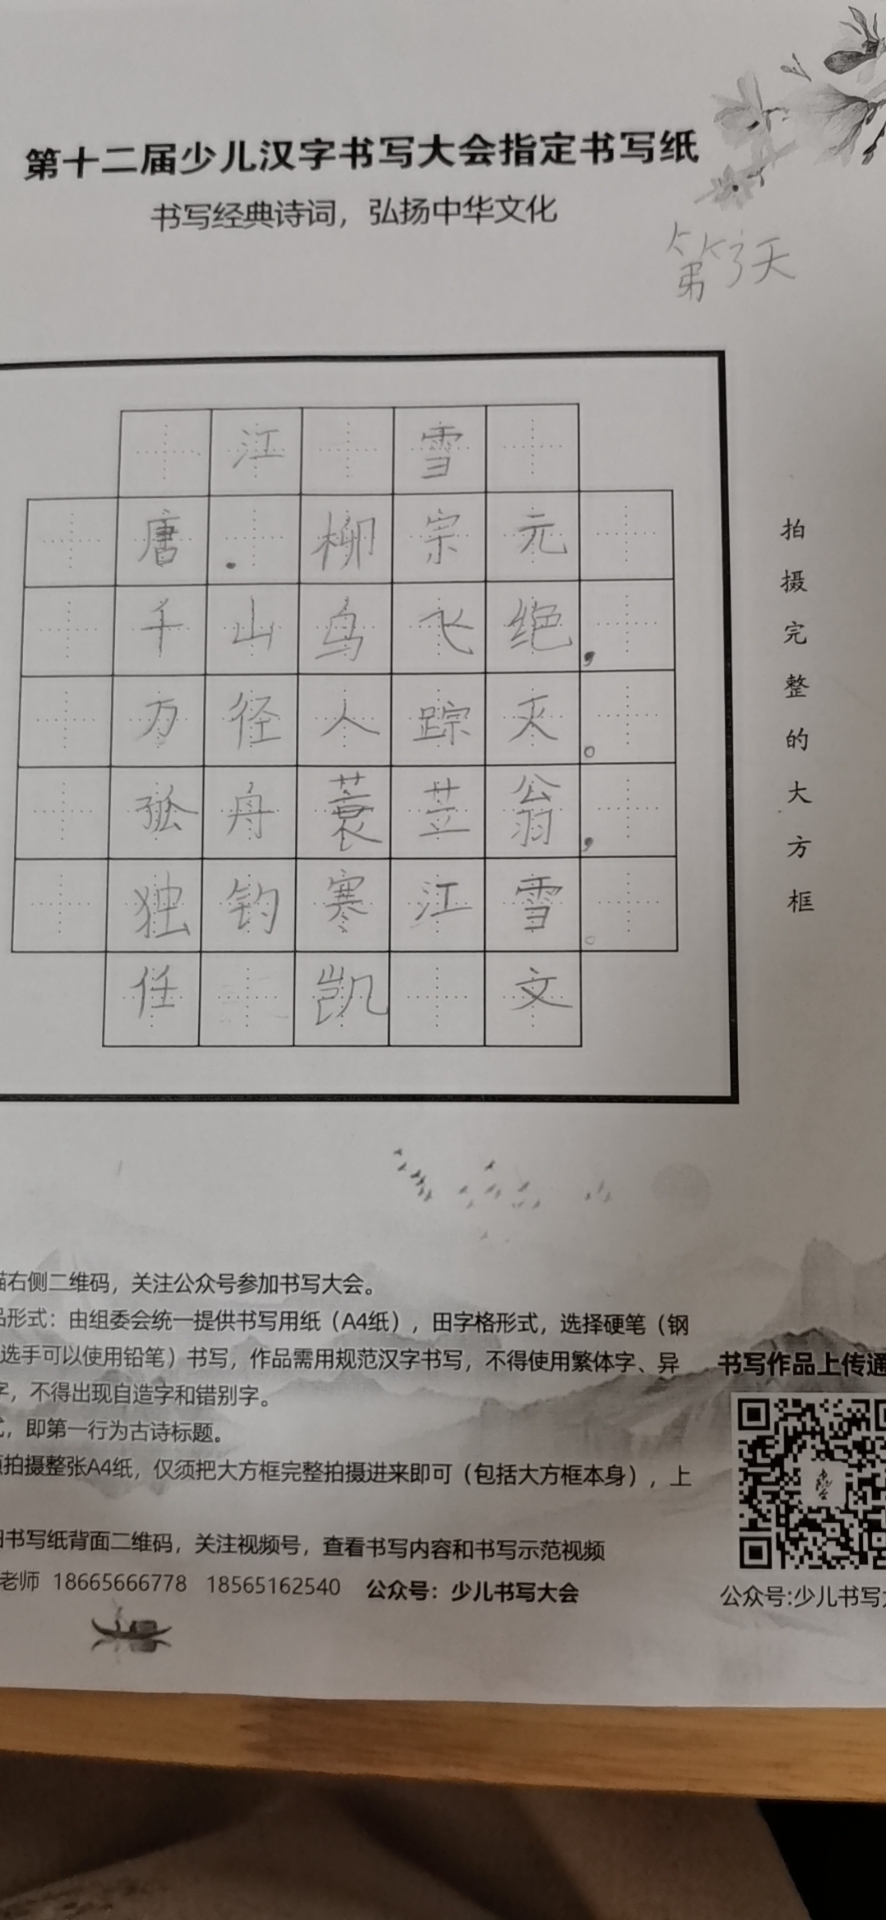 第十二届少儿汉字书写大会指定书写纸
书写经典诗词，弘扬中华文化
第3天
江雪
唐.柳宗元
千山鸟飞绝，
万径人踪灭。
孤舟蓑苙翁，
独钓寒江雪。
任凯文
拍摄完整的大方框
描右侧二维码，关注公众号参加书写大会。
品形式：由组委会统一提供书写用纸（A4纸），田字格形式，选择硬笔（钢
选手可以使用铅笔）书写，作品需用规范汉字书写，不得使用繁体字、异
字，不得出现自造字和错别字。
式，即第一行为古诗标题。
须拍摄整张A4纸，仅须把大方框完整拍摄进来即可（包括大方框本身），上
扫书写纸背面二维码，关注视频号，查看书写内容和书写示范视频
老师 18665666778 18565162540 公众号：少儿书写大会
书写作品上传通
公众号:少儿书写大